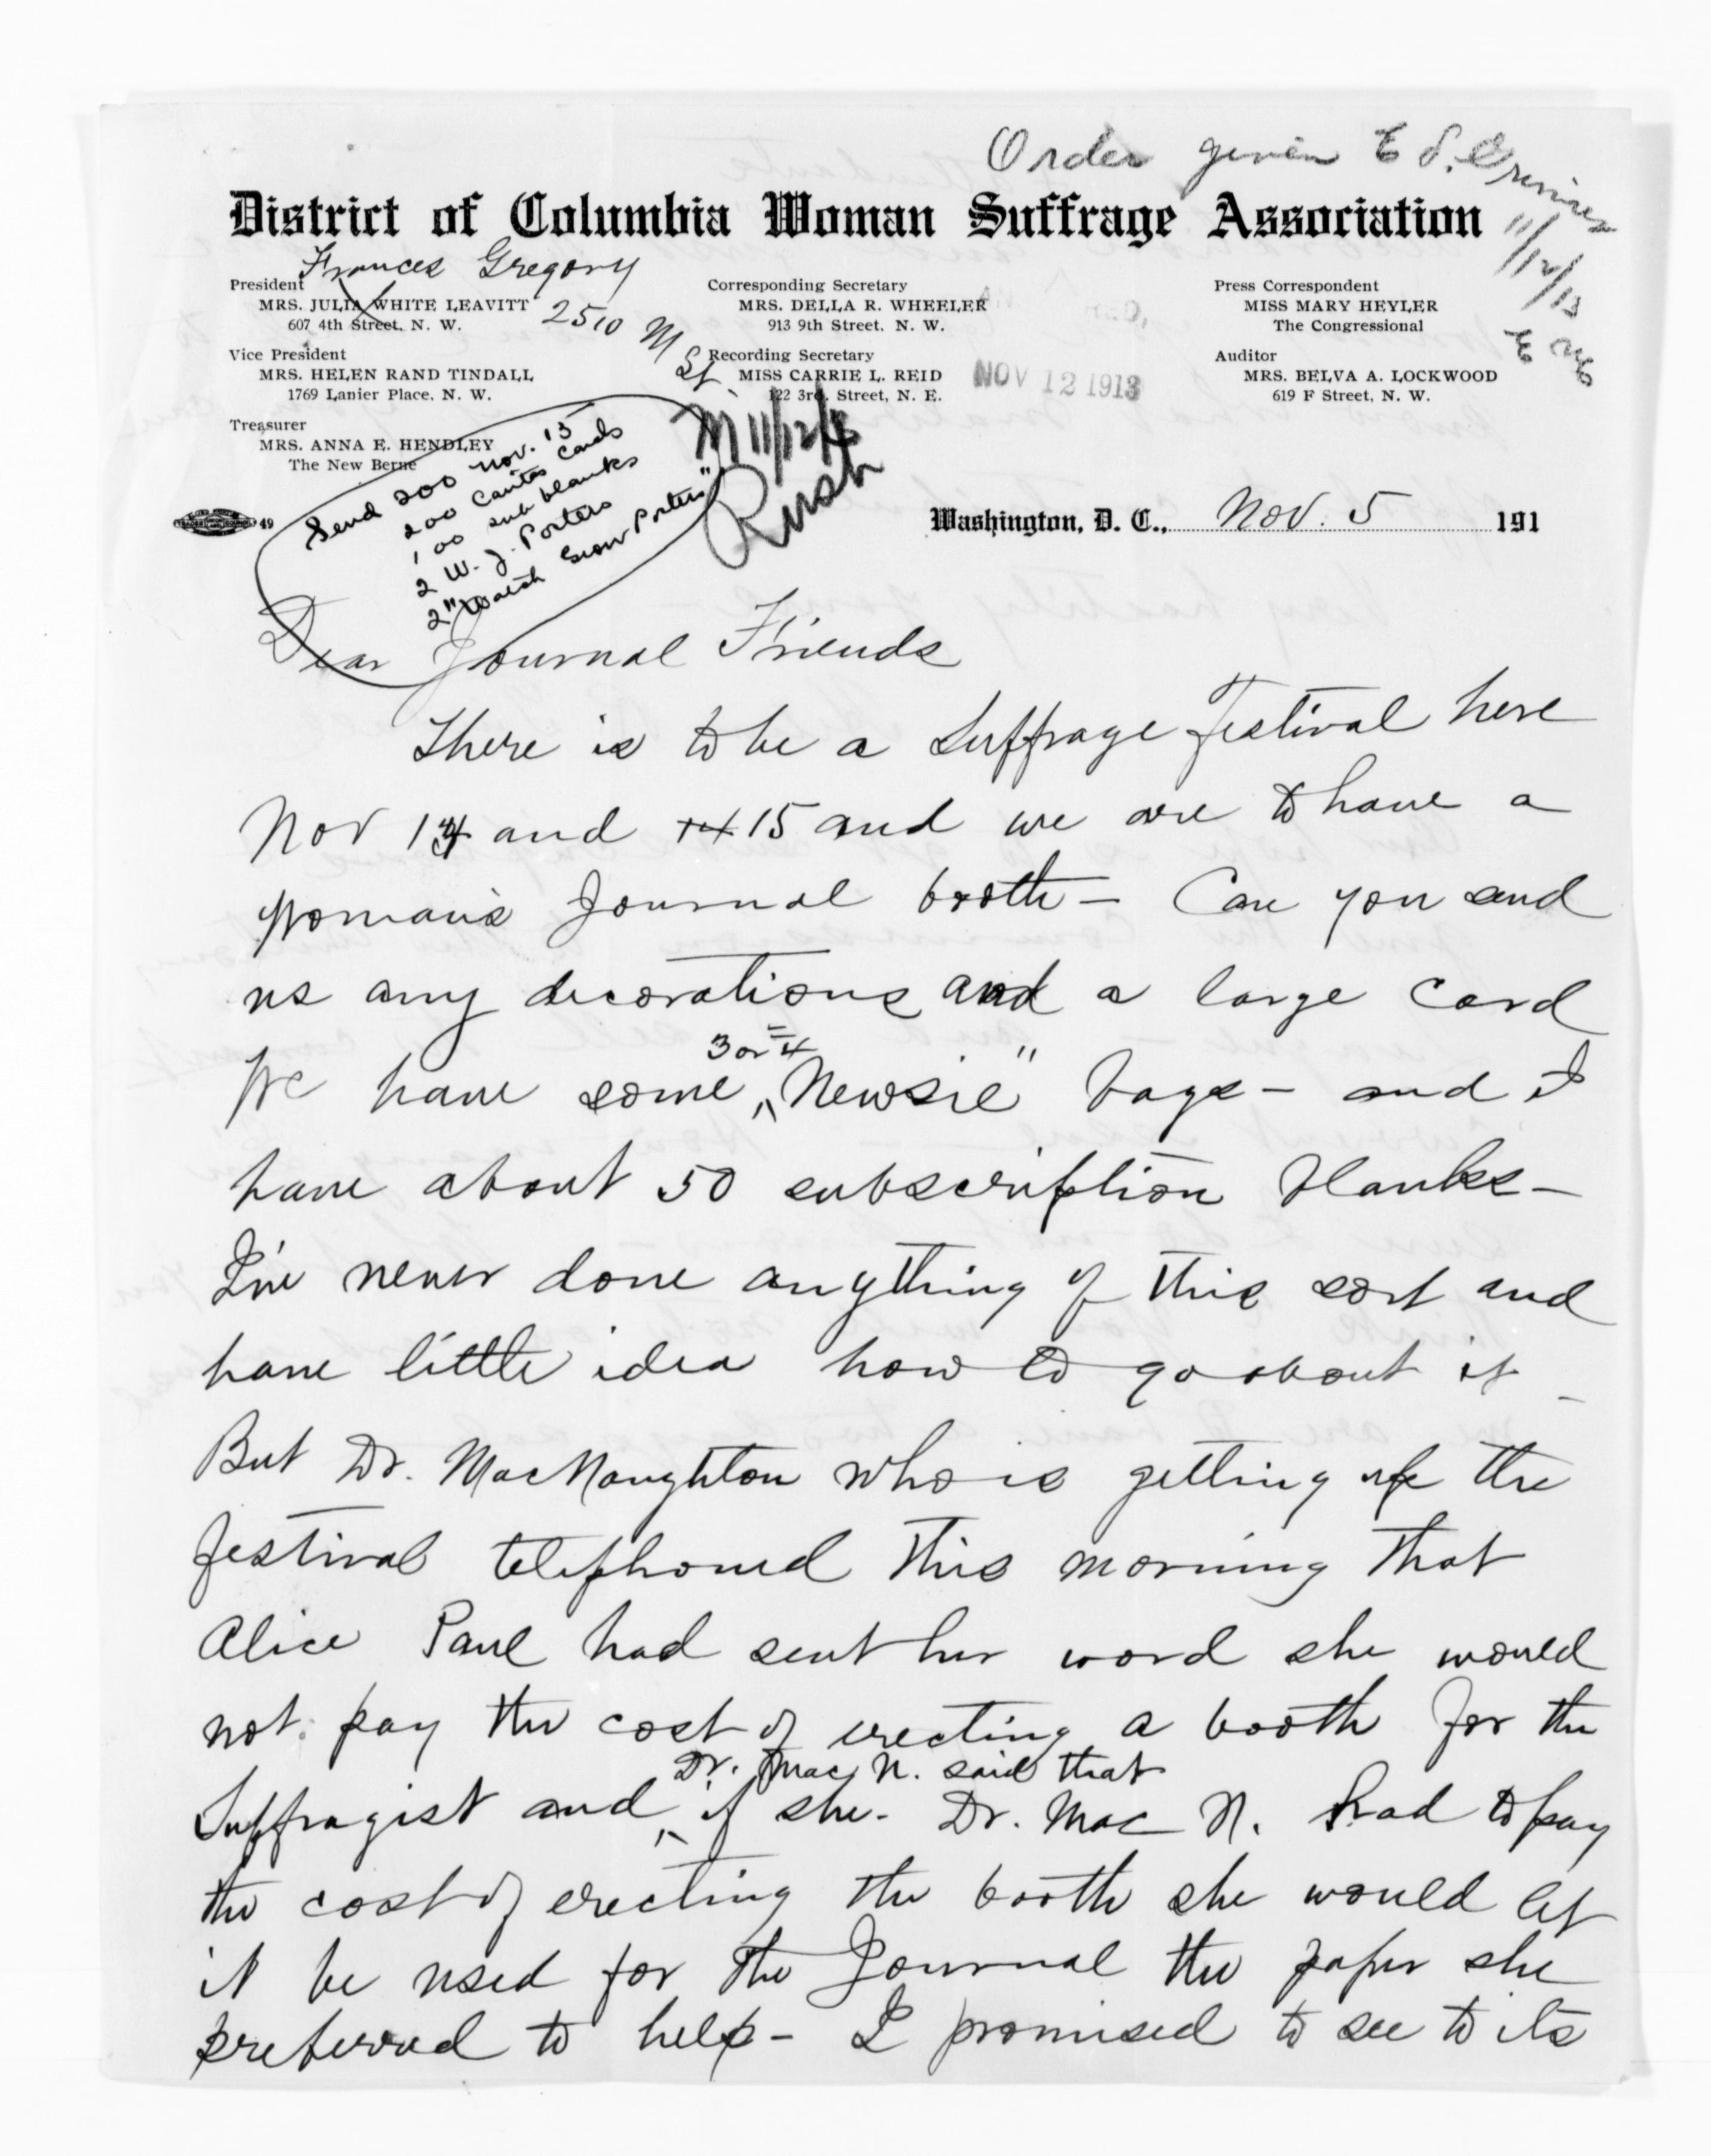 Order given E. S.
11/12/13
District of Columbia Woman Suffrage Association
Frances Gregory
2510 M St.
President
MRS. JULIA WHITE LEAVITT
607 4th Street, N. W.
Vice President
MRS. HELEN RAND TINDALL
1769 Lanier Place, N. W.
Treasurer
MRS. ANNA E. HENDLEY
The New Berne
Corresponding Secretary
MRS. DELLA R. WHEELER
913 9th Street, N. W.
Recording Secretary
MISS CARRIE L. REID
122 3rd. Street, N. E.
Press Correspondent
MISS MARY HEYLER
The Congressional
Auditor
MRS. BELVA A. LOCKWOOD
619 F Street, N. W.
NOV 12 1913
M 11/12/13
Rush
Send 200 Nov. 15
200 cards
100 sub blanks
2 W. J. Posters
2 "Watch Grow Posters"
49
Washington, D. C., Nov. 5 191
Dear Journal Friends
There is to be a Suffrage Festival here
Nov 14 and 14 15 and we are to have a
Woman's Journal booth – Can you send
us any decorations and a large card
3 or 4
We have some "Newsie" bags – and I
have about 50 subscription blanks –
I've never done anything of this sort and
have little idea how to go about it –
But Dr. MacNaughton who is getting up the
festival telephoned this morning that
Alice Paul had sent her word she would
not pay the cost of erecting a booth for the
Dr. Mac N. said that
Suffragist and if she – Dr. Mac N. had to pay
the cost of erecting the booth she would let
it be used for the Journal the paper she
preferred to help – I promised to see to its